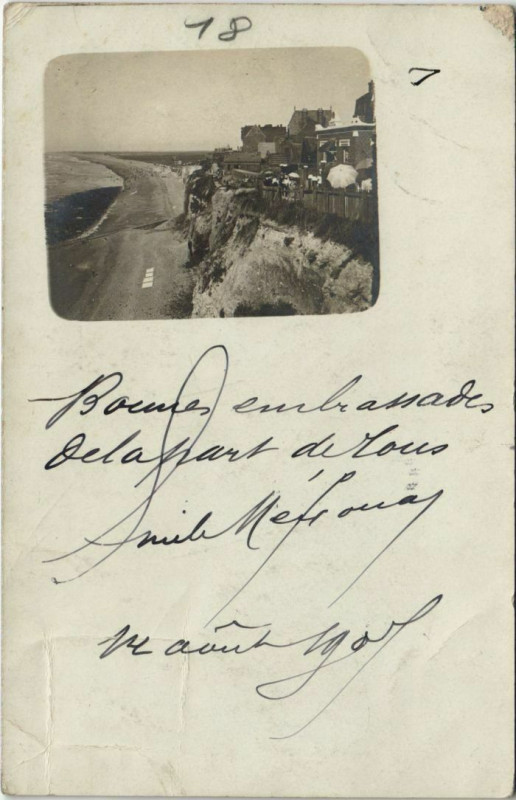 18
7
Bonnes embrassades
de la part de tous
Emile
août 190